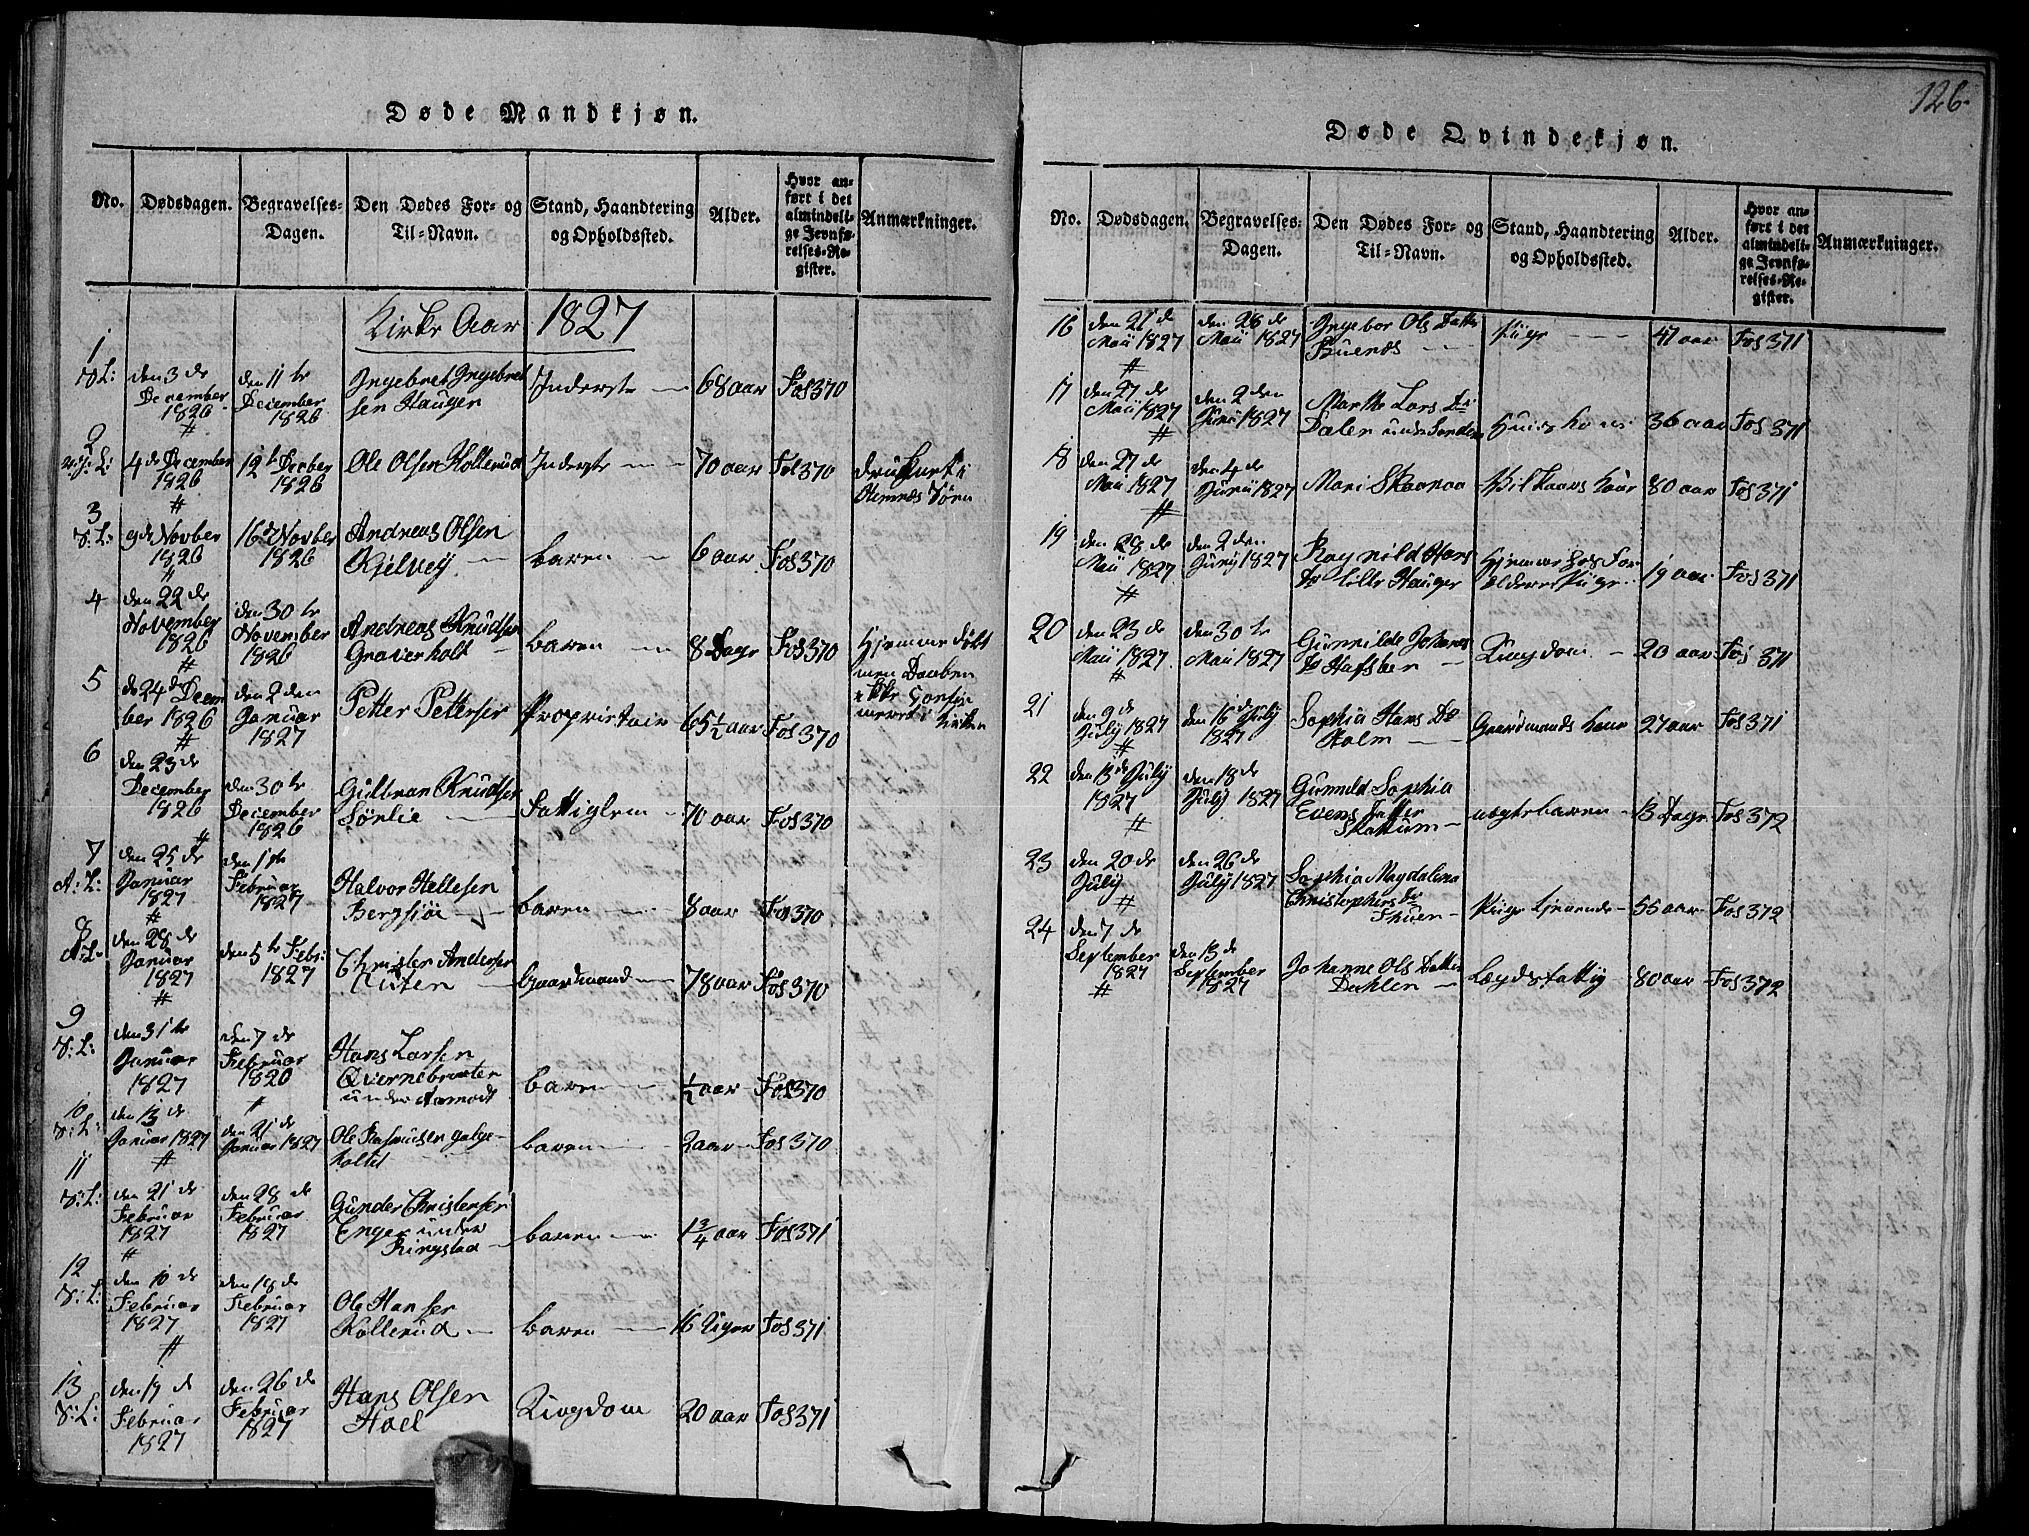 126.
Døde Mandkjøn.
No.
Dødsdagen.
Begravelses-
Dagen.
Den Dødes For- og
Til-Navn.
Stand, Haandtering
og Opholdssted.
Alder.
Hvor an-
ført i det
almindeli-
ge Jevnfø-
relses-Re-
gister.
Anmærkninger.
Kirke Aar 1827
1
den 3 de
December
1826
den 11 te
December
1826
Ingebret Ingebret
sen Hauger
Inderste
68 aar
Fos 370
2
4 de December
1826
12 te Decber
1826
Ole Olsen Kollerud
Inderste
70 aar
Fol 370
druknet i
Hemnæs Søen
3
9 de Novber
1826
16 de Novber
1826
Andreas Olsen
Kjelvey
baren
6 aar
Fos 370
4
den 22 de
November
1826
den 30 te
November
1826
Andreas Knudsen
Graverholt
baren
8 Dage
Fos 370
Hjemme døbt
men Daaben
ikke
5
de 24 de Decem
ber 1826
den 2 den
Januar
1827
Petter Pettersen
Proprietair
65 1/2 aar
Fos 370
6
den 23 de
December
1826
den 30 te
December
1826
Gulbran Knudsen
Sørlie
Fattiglem
70 aar
Fos 370
7
den 25 de
Januar
1827
den 1 ste
Februar
1827
Halvor Hellesen
Bergsjøe
baren
8 aar
Fos 370
8
den 28 de
Januar
1827
den 5 te Febr:
1827
Christen Andersen
Gaardmand
78 aar
Fos 370
9
den 31 te
Januar
1827
den 7 de
Februar
1820
Hans Larsen
Qvernebraaten
under Aamodt
baren
1/2 aar
Fos 370
10
den 13 de
Januar 1827
den 21 de
Januar 1827
Ole Rasmusen Galge-
holtet
baren
2 aar
Fos 370
11
den 21 de
Februar
1827
den 28 de
Februar
1827
Gunder Christensen
Enger under
Ringstad
baren
1 3/4 aar
Fos 371
12
den 10 de
Februar
1827
den 18 de
Februar
1827
Ole Hansen
Kollerud
baren
16 Uger
Fos 371
13
den 19 de
Februar
1827
den 26 de
Februar
1827
Hans Olsen
Hoel
Ungdom
20 aar
Fos 371
Døde Qvindekjøn.
No.
Dødsdagen.
Begravelses-
Dagen.
Den Dødes For- og
Til-Navn.
Stand, Haandtering
og Opholdssted.
Alder.
Hvor an-
ført i det
almindeli-
ge Jevnfø-
relses-Re-
gister.
Anmærkninger.
16
den 21 de
Maii 1827
den 28 de
Maii 1827
Ingebor Ols Datter
Buenæs
Pige
41 aar
Fos 371
17
den 27 de
Maii 1827
den 2 den
Junii 1827
Marthe Lars Dr
Dalen under
Huuskone
36 aar
Fos 371
18
den 27 de
Maii 1827
den 4 de
Junii 1827
Mari Skaaraa
80 aar
Fos 371
19
den 28 de
Maii 1827
den 2 den
Junij 1827
Ragnild Hans
Dr Lille Hauger
Hjemme hos For
ældrene Pige
19 aar
Fos 371
20
den 23 de
Maii 1827
den 30 te
Maii 1827
Gunnilde Johannes
Dr Hafsteen
Ungdom
20 aar
Fos 371
21
den 9 de
July 1827
den 16 de July
1827
Sophia Hans Dr
Holm
Gaardmands Kone
27 aar
Fos 371
22
den 13 de July
1827
den 18 de
July 1827
Gunnild Sophia
Evens Datter
Skattum
uægte baren
13 Dage
Fos 372
23
den 20 de
July
den 26 de
July 1827
Sophia Magdalena
Christophers Dr
Thuen
Pige tjenende
55 aar
Fos 372
24
den 7 de
September
1827
den 13 de
September
1827
Johanne Ols Datter
Dahlen
Lægdsfattig
80 aar
Fos 372